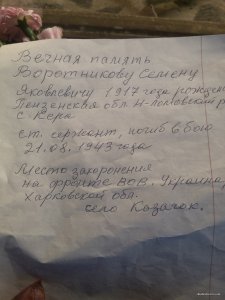 Вечная память
Воротникову Семену
Яковлевичу 1917 года рождения
Пензенская обл. Н-ломовский р
с Кера
ст. сержант, погиб в бою
21.08.1943 года
Место захоронения
на фронте ВОВ. Украина,
Харковской обл.
село Козачок.